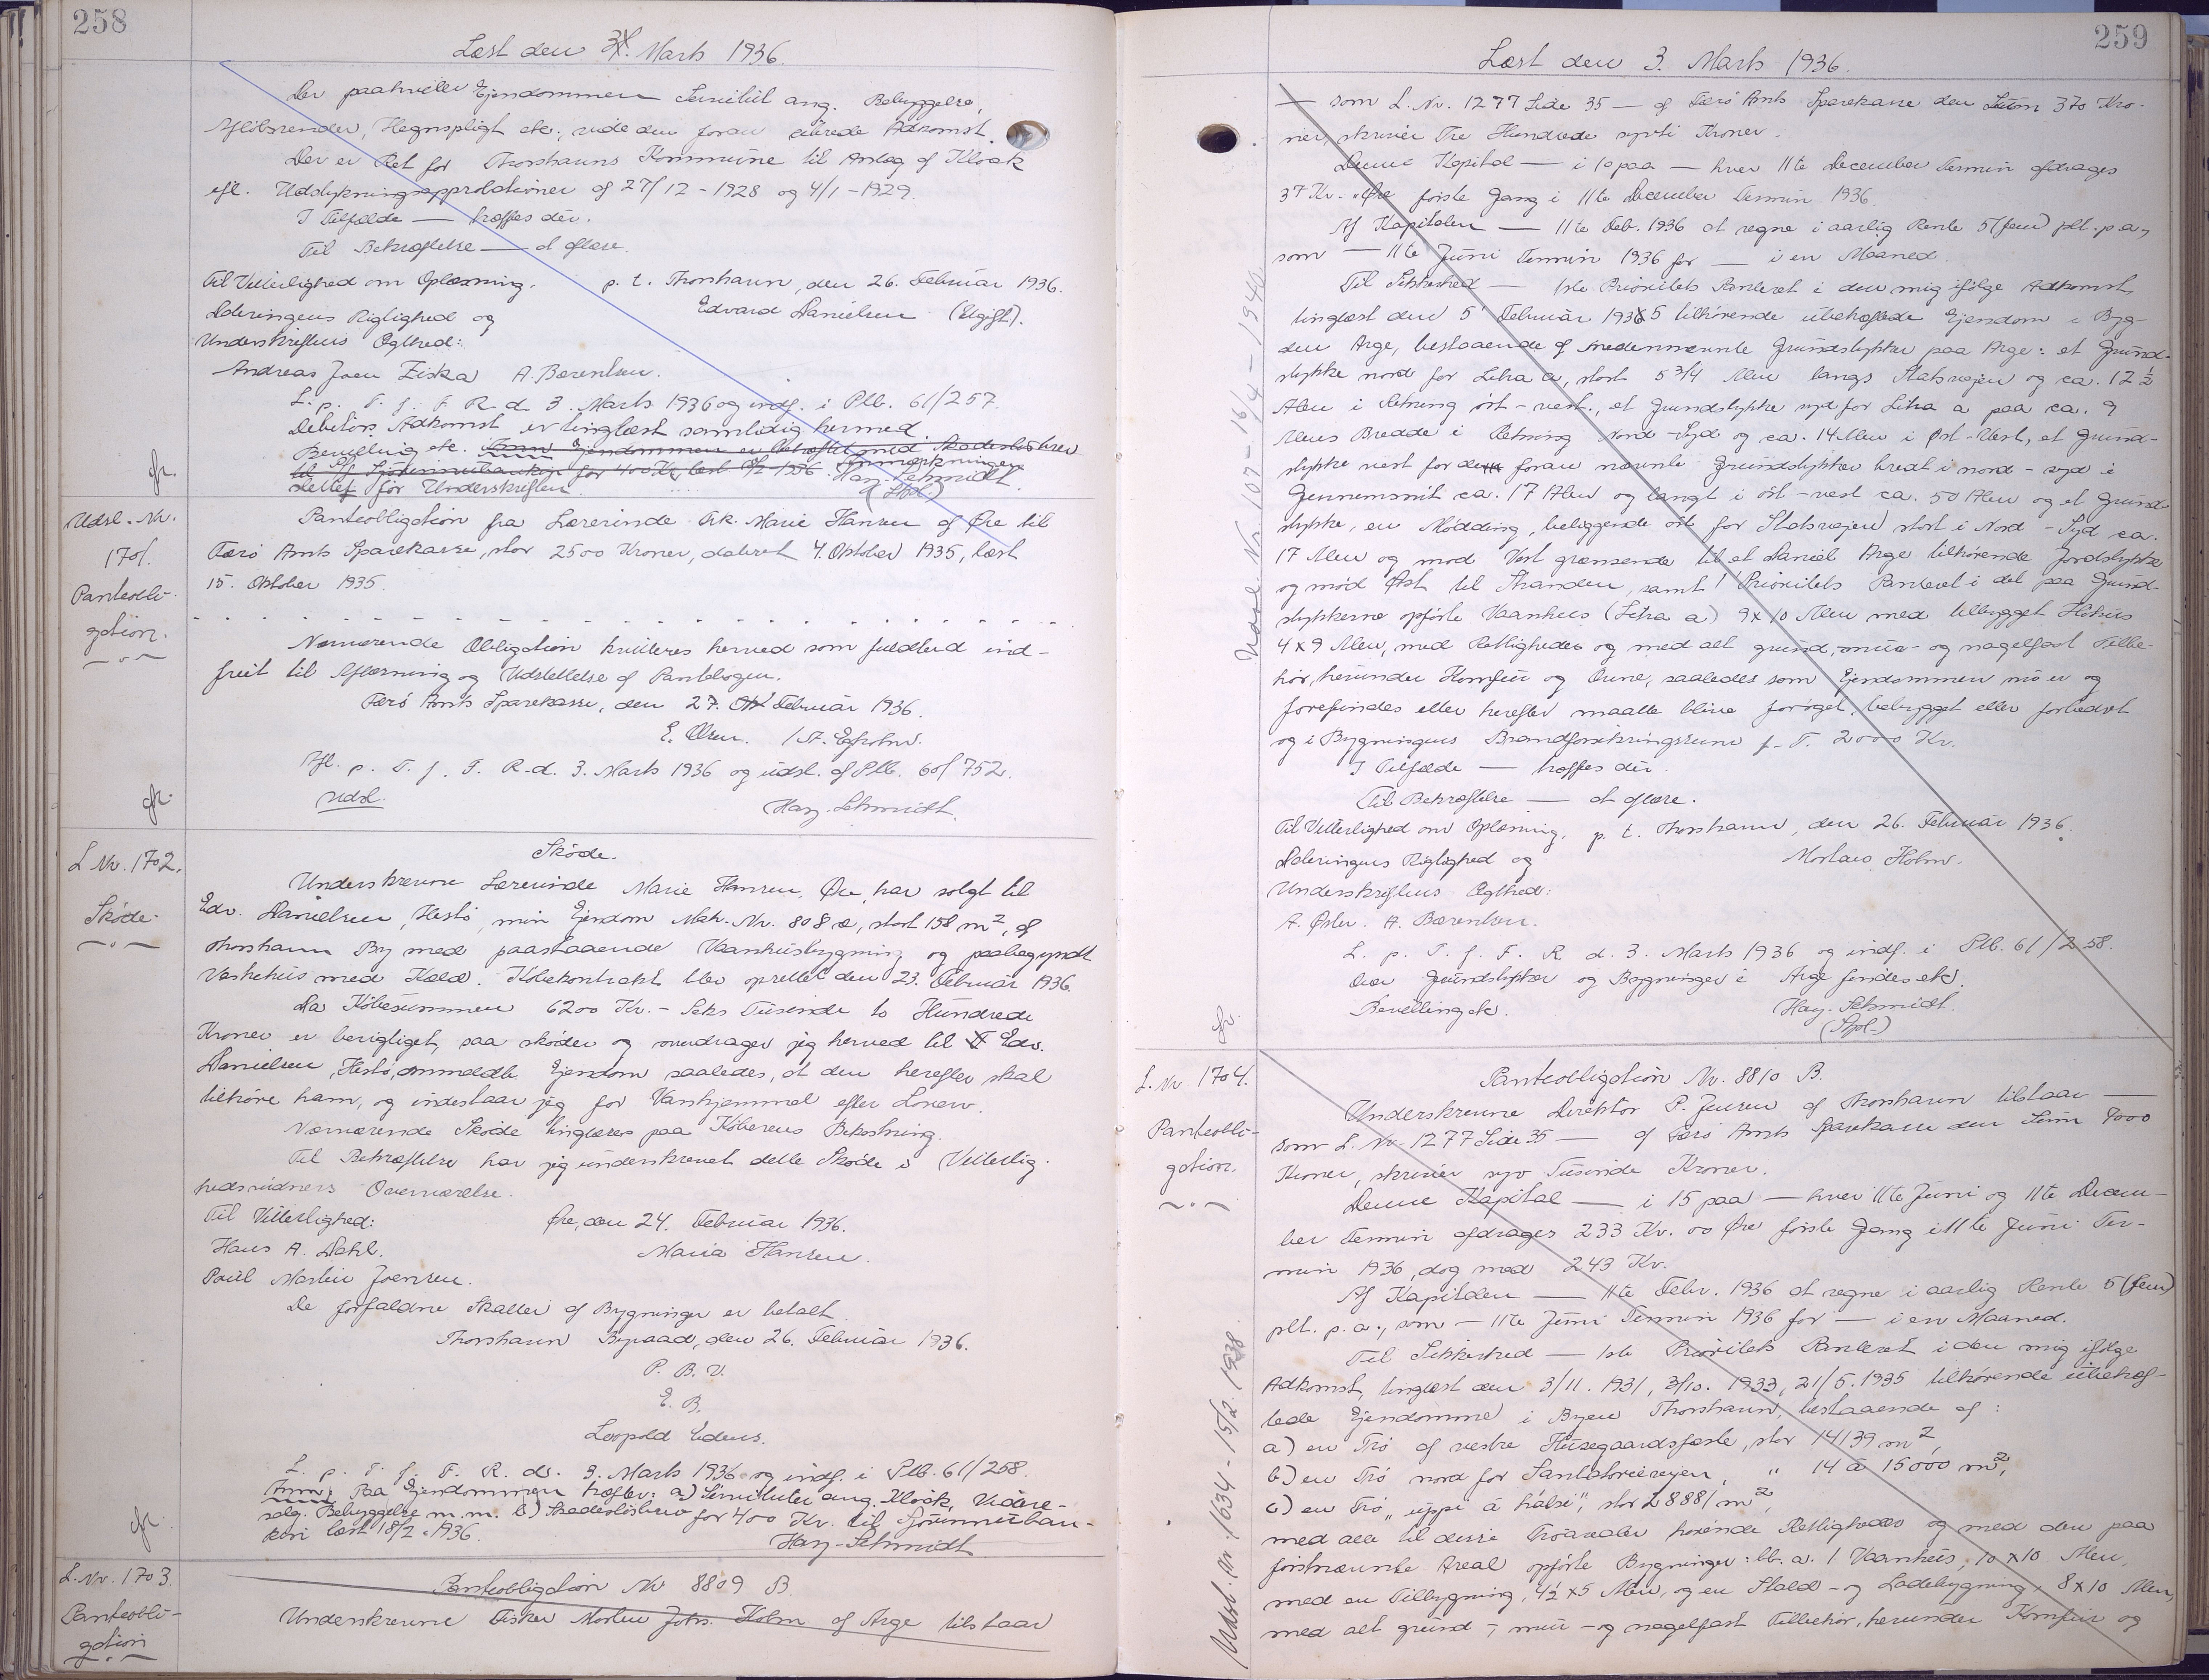 258
Læst den 3. Marts 1936.
Der paahviler Ejendommen Servitut ang. Bebyggelse,
Aflöbsrender, Hegnspligt etc., vide den foran Adkomst.
Der er Ret for Thorshavns Kommune til Anlag af Kloak
efl. Udstykningsapprobationer af 27/12 - 1928 og 4/1 - 1929.
I Tilfælde — træffes der.
Til Bekræftelse — at aflæse.
Til Vitterlighed om Oplæsning, p. t. Thorshavn, den 26. Februar 1936.
Dateringens Rigtighed og Edvard Danielsen (Ugift).
Underskriftens Ægthed:
Andreas Joen Ziska A. Bærentsen.
L. p. T. f. F. R. d. 3. Marts 1936 og indf. i Plb. 61/257.
Debitors Adkomst er tinglæst samtidig hermed.
Bevilling etc. Anm. Ejendommen er behæftet med Skadeslösbrev
til A/f Sjóvinnubankin for 400 Kr. læst 18/2 1936. Anmærkningen
slettet för Underskriften. Hay-Schmidt.
(Spl.)
gr.
Udsl. Nr.
1701.
Panteobli-
gation.
Panteobligation fra Lærerinde Frk. Marie Hansen af Øre til
Færö Amts Sparekasse, stor 2500 Kroner, dateret 4. Oktober 1935, læst
15. Oktober 1935.
Nærværende Obligation kvitteres herved som fuldtud ind-
friet til Aflæsning og Udslettelse af Pantebogen.
Færö Amts Sparekasse, den 27. Februar 1936.
E. Olsen. / A. Egholm.
Afl. p. T. f. F. R. d. 3. Marts 1936 og udsl. af Plb. 60/752.
Udsl. Hay-Schmidt.
gr.
L Nr. 1702.
Sköde.
Sköde.
Underskrevne Lærerinde Marie Hansen, Øre, har solgt til
Edv. Danielsen, Hestö, min Ejendom Matr. Nr. 808 æ, stort 158 m², af
Thorshavn By med paastaaende Vaanhusbygning og paabegyndt
Vaskehus med Kæld. Köbekontrakt blev oprettet den 23. Februar 1936
Da Köbesummen 6200 Kr. - Seks Tusinde to Hundrede
Kroner er berigtiget, saa sköder og overdrager jeg herved til Edv.
Danielsen, Hestö, ommeldte Ejendom saaledes, at den herefter skal
tilhöre ham, og indestaar jeg for Vanhjemmel efter Loven.
Nærværende Sköde tinglæses paa Köberens Bekostning.
Til Bekræftelse har jeg underskrevet dette Sköde i Vitterlig-
hedsvidners Overværelse.
Til Vitterlighed: Øre, den 24. Februar 1936.
Hans A. Dahl. Maria Hansen.
Poul Martin Joensen.
De forfaldne Skatter af Bygninger er betalt.
Thorshavn Byraad, den 26. Februar 1936.
P. B. V.
E. B.
Leopold Edens.
L. p. T. f. F. R. d. 3. Marts 1936 og indf. i Plb. 61/258.
Anm: Paa Ejendommen hæfter: a) Servitutter ang. Kloak, Videre-
salg, Bebyggelse m. m. b) Skadeslösbrev for 400 Kr. til Sjóvinnuban-
kin læst 18/2 - 1936. Hay-Schmidt
gr.
L. Nr. 1703.
Panteobli-
gation
Panteobligation Nr 8809 B.
Underskrevne Fisker Morten Johs. Holm af Arge tilstaar
259
Læst den 3. Marts 1936.
— som L. Nr. 1277 Side 35 — af Færö Amts Sparekasse den Sum 370 Kro-
ner, skriver Tre Hundrede syvti Kroner.
Denne Kapital — i 10 paa — hver 11te December Termin afdrages
37 Kr. Øre förste Gang i 11te December Termin 1936.
Af Kapitalen — 11te Feb. 1936 at regne i aarlig Rente 5 (fem) pct. p. a.,
som — 11te Juni Termin 1936 for — i en Maaned.
Til Sikkerhed — 1ste Prioritets Panteret i den mig ifölge Adkomst,
tinglæst den 5 Februar 1935 tilhörende ubehæftede Ejendom i Byg-
den Arge, bestaaende af nedennævnte Grundstykker paa Arge: et Grund-
stykke nord for Litra a, stort 5 3/4 Alen langs Statsvejen og ca. 12 ½
Alen i Retning öst - vest., et Grundstykke syd for Litra a paa ca. 9
Alens Bredde i Retning Nord - Syd og ca. 14 Alen i Øst - Vest, et Grund-
stykke vest for de foran nævnte Grundstykker bredt i nord - syd i
Gennemsnit ca. 17 Alen og langt i öst - vest ca. 50 Alen og et Grund-
stykke, en Mödding, beliggende öst for Statsvejen stort i Nord - Syd ca.
17 Alen og mod Vest grænsende til et Daniel Arge tilhörende Jordstykke
og mod Øst til Stranden, samt 1 Prioritets Panteret i det paa Grund-
stykkerne opförte Vaanhus (Litra a) 9 x 10 Alen med tilbygget Höhus
4 x 9 Alen, med Rettigheder og med alt grund-, mur- og nagelfast Tilbe-
hör, herunder Komfur og Ovne, saaledes som Ejendommen nu er og
forefindes eller herefter maatte blive foröget, bebygget eller forbedret
og i Bygningens Brandforsikringssum p. T. 2000 Kr.
I Tilfælde — træffes der.
Til Bekræftelse — at aflæse.
Til Vitterlighed om Oplæsning, p. t. Thorshavn, den 26. Februar 1936.
Dateringens Rigtighed og Morten Holm.
Underskriftens Ægthed:
A. Öster. A. Bærentsen.
L. p. T. f. F. R. d. 3. Marts 1936 og indf. i Plb. 61/258.
Over Grundstykker og Bygninger i Arge findes etc.
Bevilling etc. Hay-Schmidt.
(Spl.)
gr.
Udsl. Nr. 107 - 16/4 - 1940
L. Nr. 1704.
Panteobli-
gation.
Panteobligation Nr. 8810 B.
Underskrevne Direktör P. Jensen af Thorshavn tilstaar —
som L. Nr. 1277 Side 35 — af Færö Amts Sparekasse den Sum 7000
Kroner, skriver syv Tusinde Kroner.
Denne Kapital — i 15 paa — hver 11te Juni og 11te Decem-
ber Termin afdrages 233 Kr. 00 Øre förste Gang i 11te Juni Ter-
min 1936, dog med 243 Kr.
Af Kapitalen — 11te Febr. 1936 at regne i aarlig Rente 5 (fem)
pct. p. a., som — 11te Juni Termin 1936 for — i en Maaned.
Til Sikkerhed — 1ste Prioritets Panteret i den mig ifölge
Adkomst, tinglæst den 3/11. 1931, 3/10. 1933, 21/5. 1935 tilhörende ubehæf-
tede Ejendomme i Byen Thorshavn, bestaaende af:
a) en Trö af vestre Husegaardsfæste, stor 14139 m²,
b) en Trö nord for Sanatorievejen, " 14 à 15000 m²,
c) en Trö "uppi á hálsi", stor 2888/ m²,
med alle til disse Tröarealer hörende Rettigheder og med den paa
förstnævnte Areal opförte Bygninger: lb. a. 1 Vaanhus, 10 x 10 Alen,
med en Tilbygning, 4½ x 5 Alen, og en Stald- og Ladebygning, 8 x 10 Alen,
med alt grund-, mur- og nagelfast Tilbehör, herunder Komfur og
Udsl. Nr. 1634 - 15/2 1938.